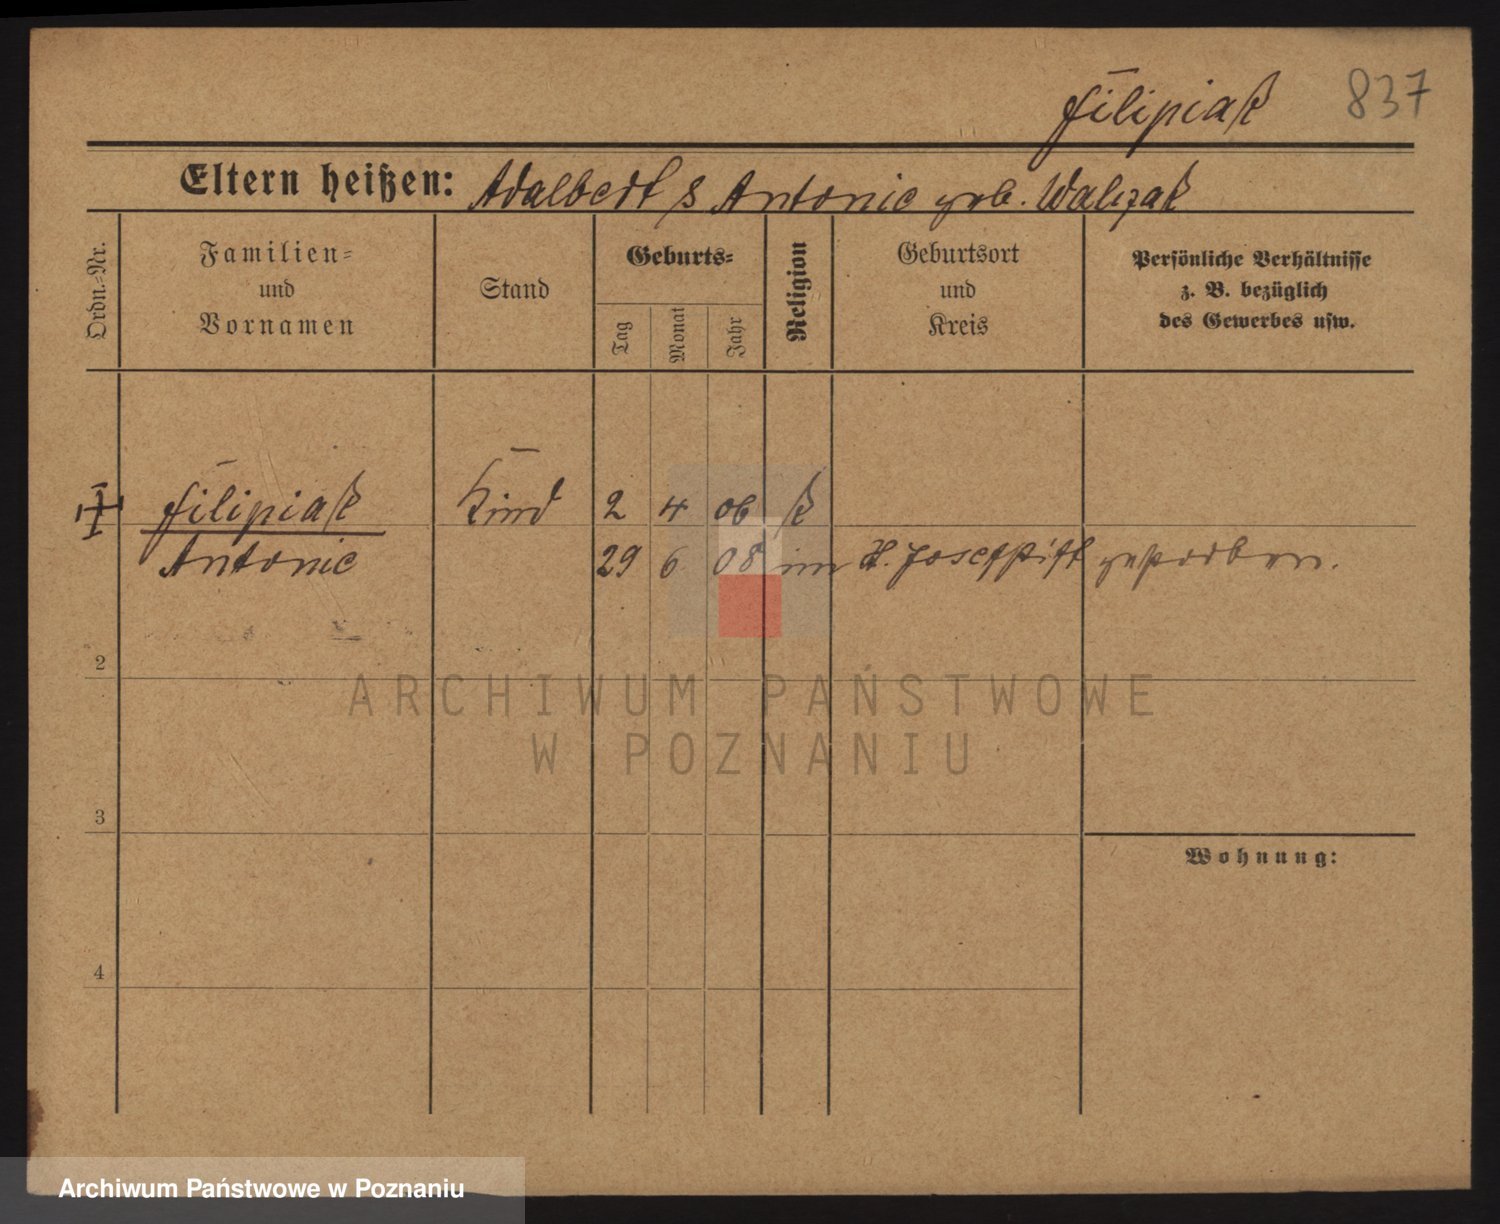 Filipiak 837
Eltern heißen: Adalbert & Antonie geb. Walczak
Ordn.-Nr.
Familien- und Vornamen
Stand
Geburts-
Tag
Monat
Jahr
Religion
Geburtsort und Kreis
Persönliche Verhältnisse
z. B. bezüglich
des Gewerbes usw.
1 Filipiak Kind 2 4 06 k
Antonie 29 6 08 im St. Josefstift gestorben.
2
ARCHIWUM PAŃSTWOWE
W POZNANIU
3
Wohnung:
4
Archiwum Państwowe w Poznaniu